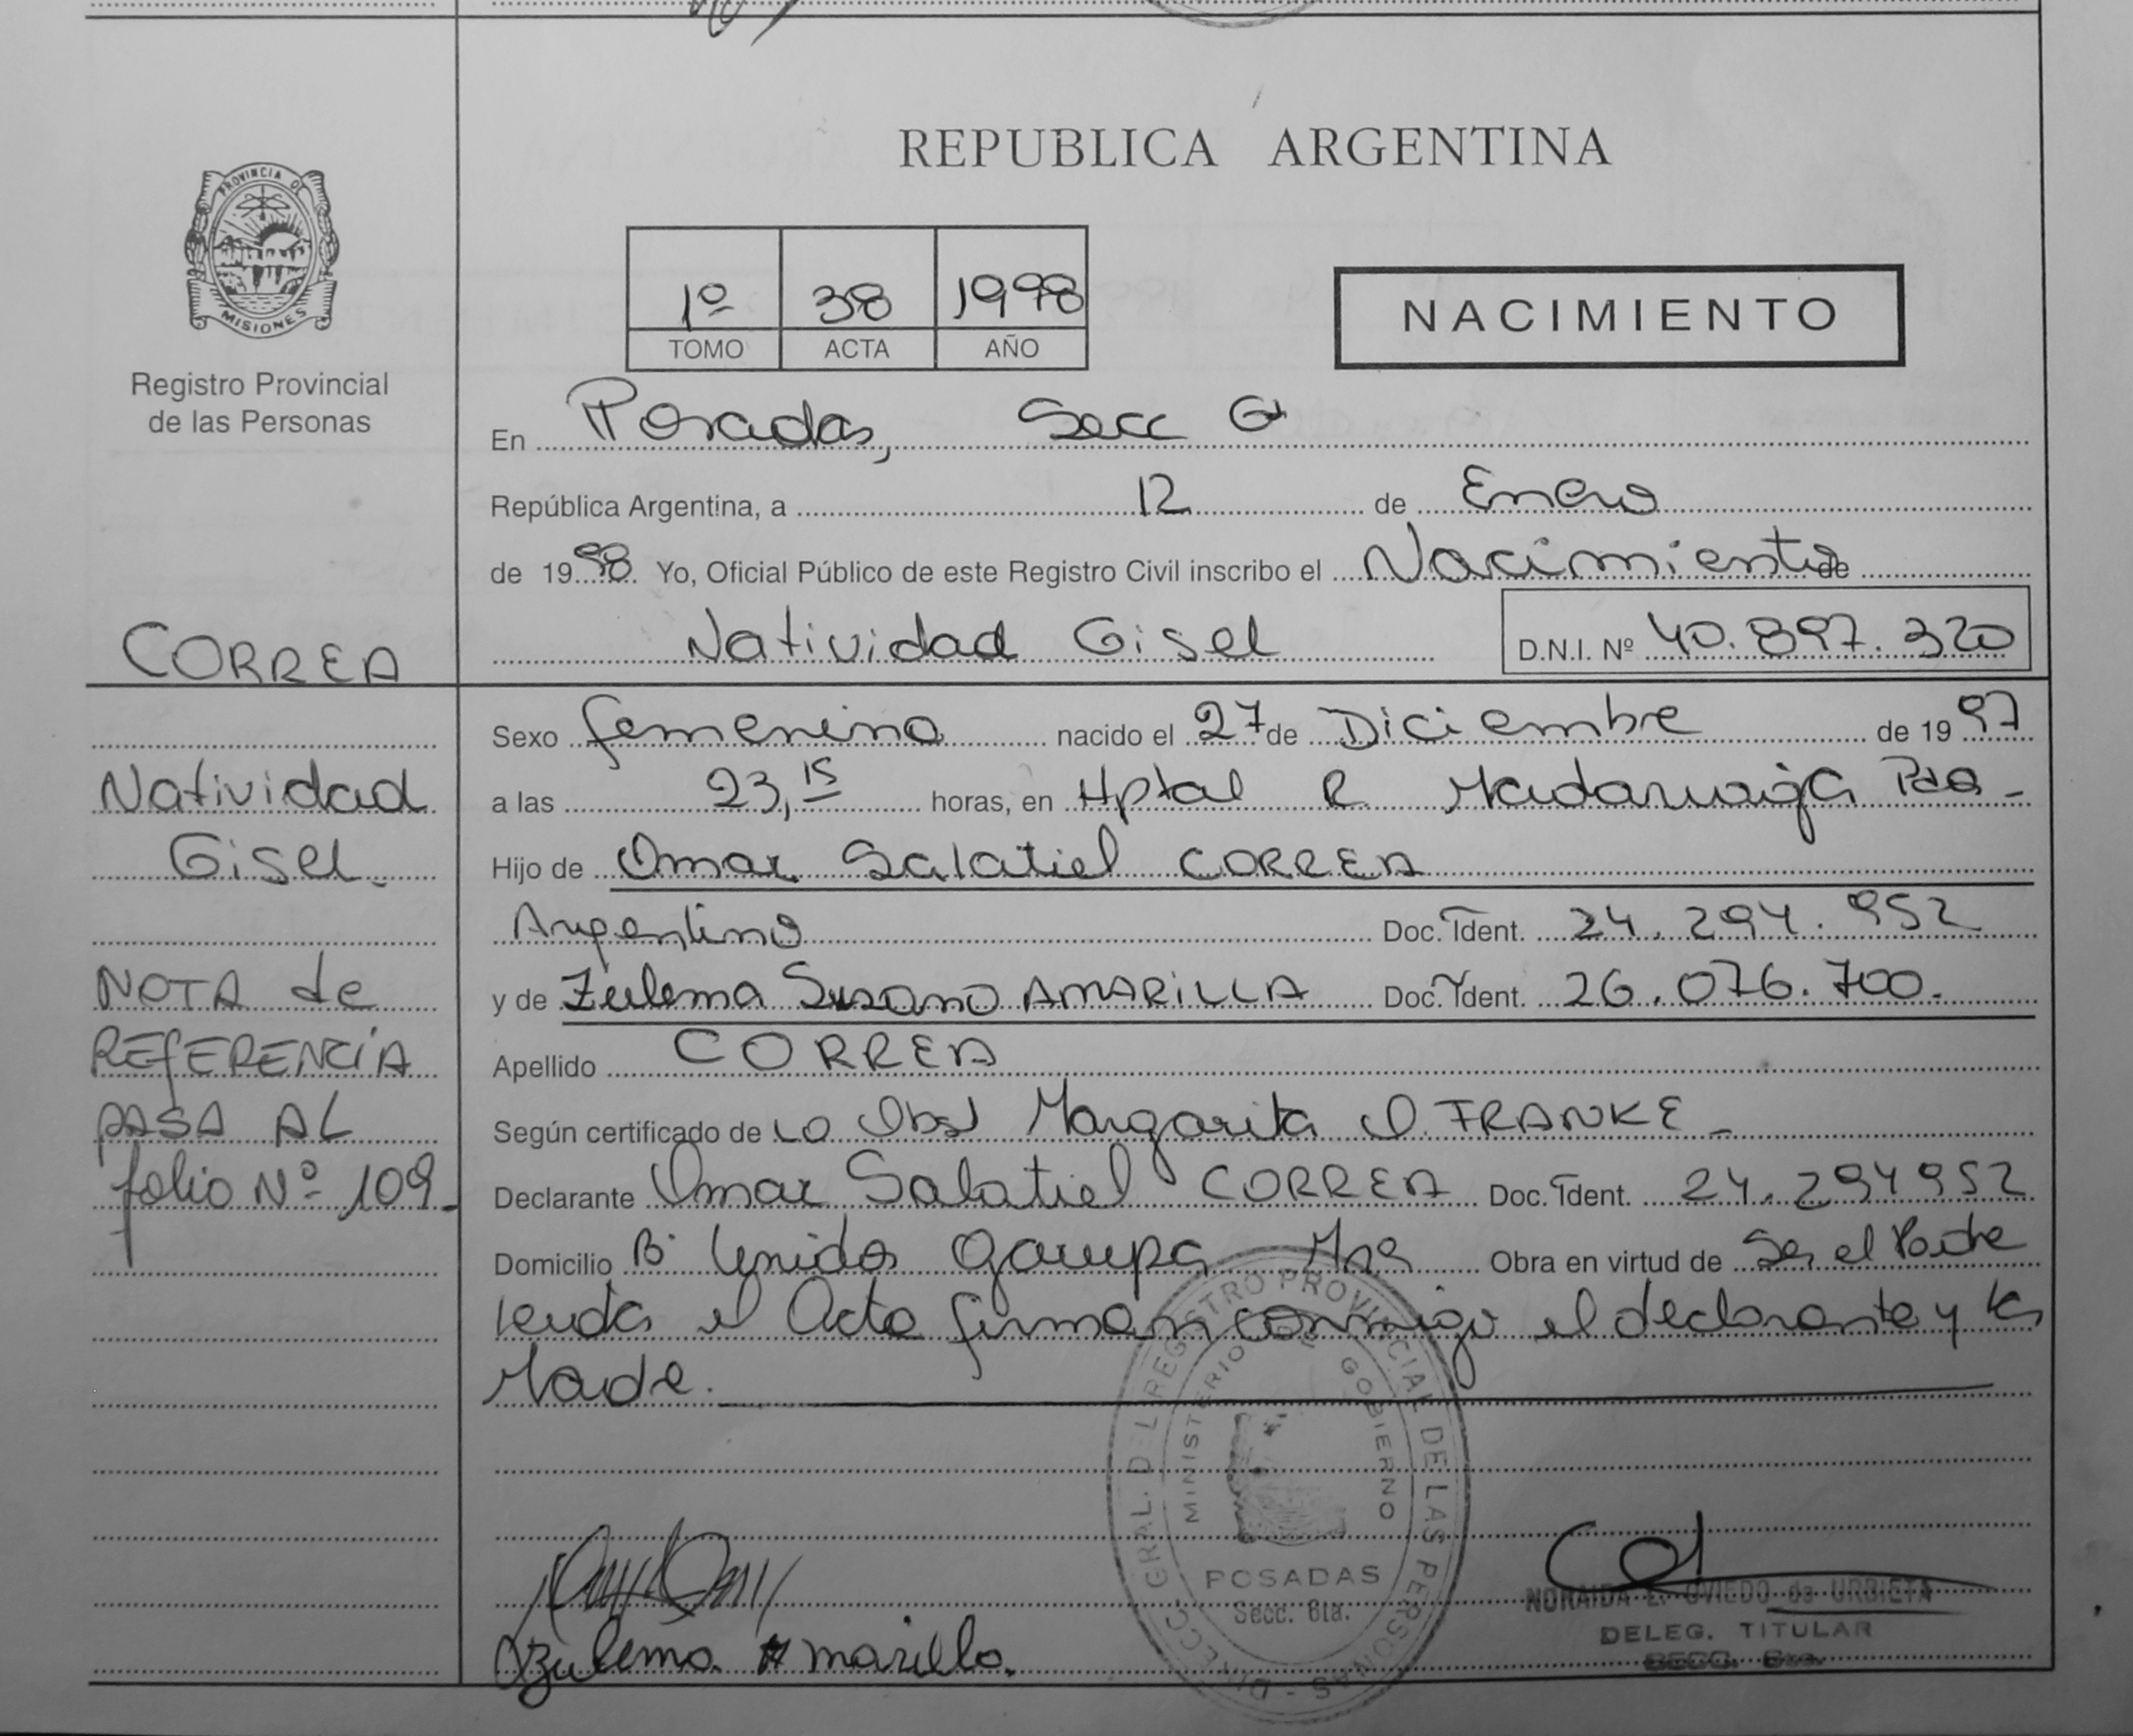 REPUBLICA ARGENTINA
PROVINCIA DE
MISIONES
Registro Provincial
de las Personas
1º 38 1998
TOMO ACTA AÑO
NACIMIENTO
En Posadas, Secc 6ª
República Argentina, a 12 de Enero
de 1998 Yo, Oficial Público de este Registro Civil inscribo el Nacimiento de
Natividad Gisel D.N.I. Nº 40.897.320
CORREA
Natividad
Gisel.
NOTA de
REFERENCIA
PASA AL
folio Nº 109.
Sexo femenino nacido el 27 de Diciembre de 1997
a las 23,15 horas, en Hptal R Madariaga Pdas-
Hijo de Omar Salatiel CORREA
Argentino Doc. Ident. 24.294.952
y de Zulema Susana AMARILLA Doc. Ident. 26.076.700.
Apellido CORREA
Según certificado de La Obst Margarita O. FRANKE-
Declarante Omar Salatiel CORREA Doc. Ident. 24.294952
Domicilio Bº Unidos Garupa Mnes Obra en virtud de Ser el Padre
Leida el Acta firman conmigo el declarante y la
Madre.
DIRECC. GRAL. DEL REGISTRO PROVINCIAL DE LAS PERSONAS -
MINISTERIO DE GOBIERNO
POSADAS
Secc. 6ta.
Zulema Amarilla.
NORAIDA E. OVIEDO de URBIETA
DELEG. TITULAR
SECC. 6ta.